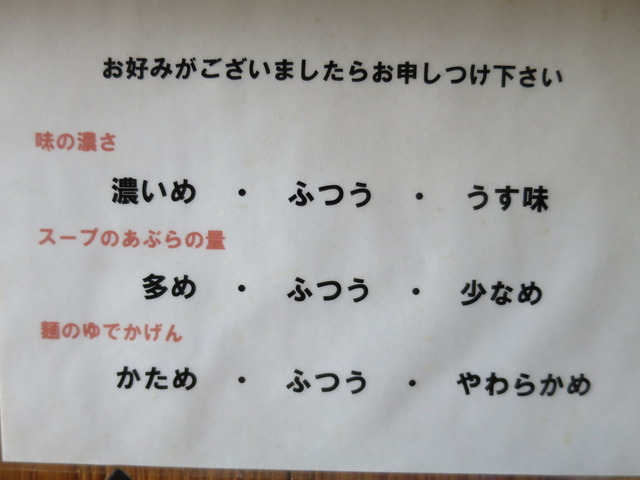 お好みがございましたらお申しつけ下さい
味の濃さ
濃いめ ・ ふつう ・ うす味
スープのあぶらの量
多め ・ ふつう ・ 少なめ
麺のゆでかげん
かため ・ ふつう ・ やわらかめ